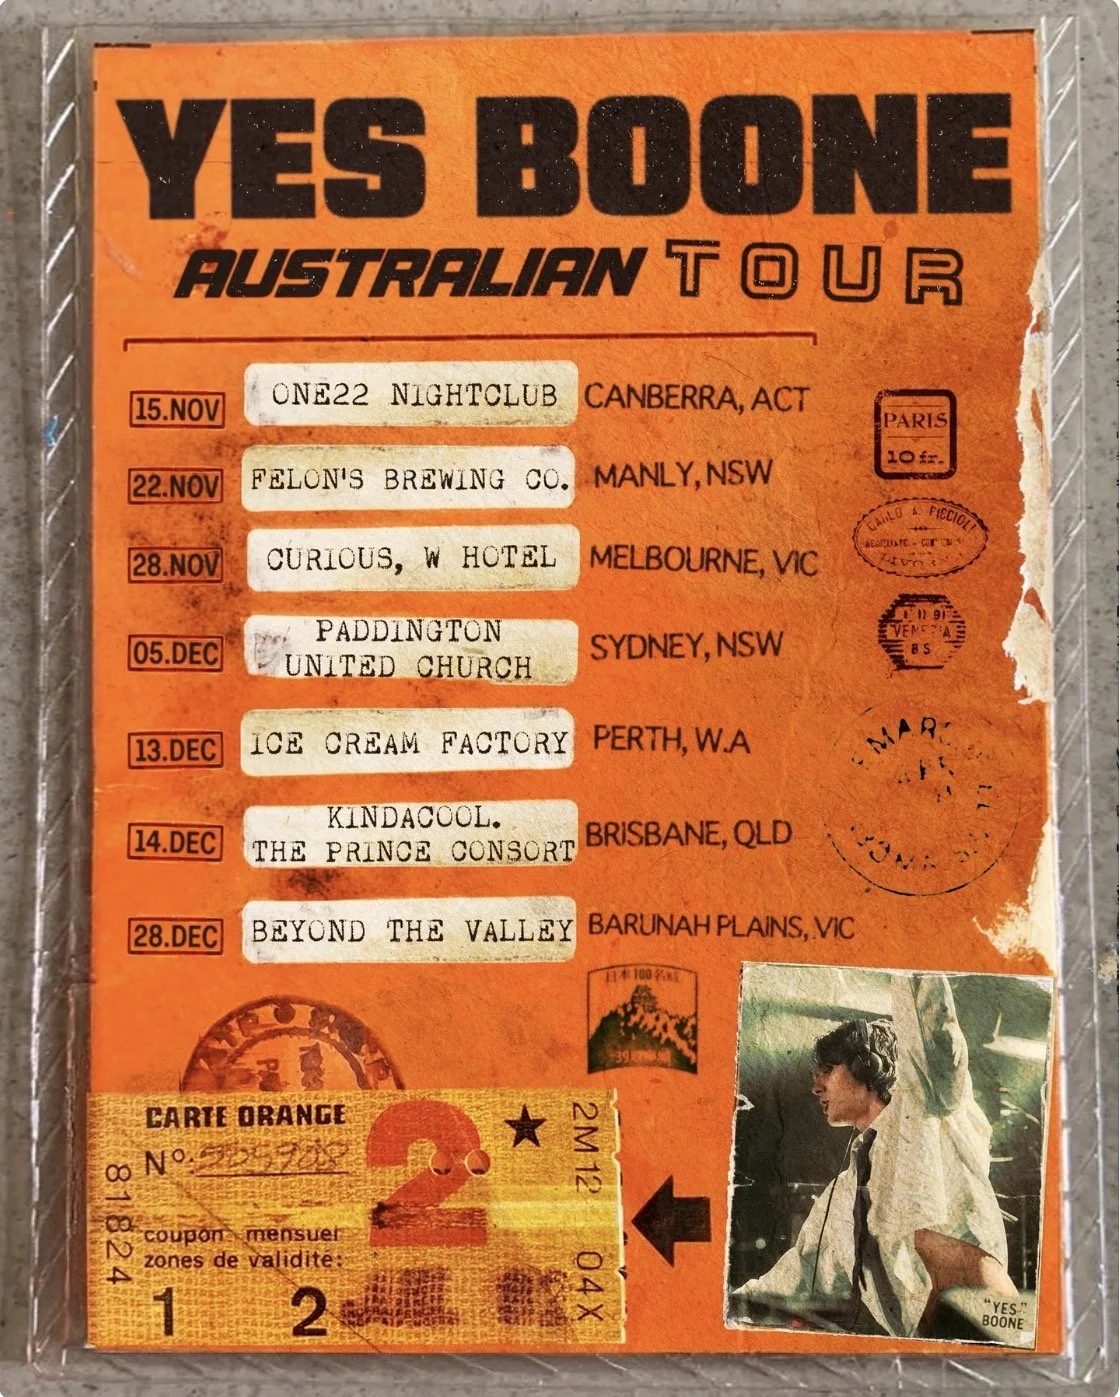 YES BOONE
AUSTRALIAN TOUR
15.NOV ONE22 NIGHTCLUB CANBERRA, ACT
22.NOV FELON'S BREWING CO. MANLY, NSW
28.NOV CURIOUS, W HOTEL MELBOURNE, VIC
05.DEC PADDINGTON
UNITED CHURCH SYDNEY, NSW
13.DEC ICE CREAM FACTORY PERTH, W.A
14.DEC KINDACOOL.
THE PRINCE CONSORT BRISBANE, QLD
28.DEC BEYOND THE VALLEY BARUNAH PLAINS, VIC
PARIS
10 fr.
CARLO A. PICCIOLI
VENEZIA
BS
日本100名城
CARTE ORANGE
Nº:
2
2M12 04X
81824
coupon mensuel
zones de validité:
1 2
"YES"
BOONE